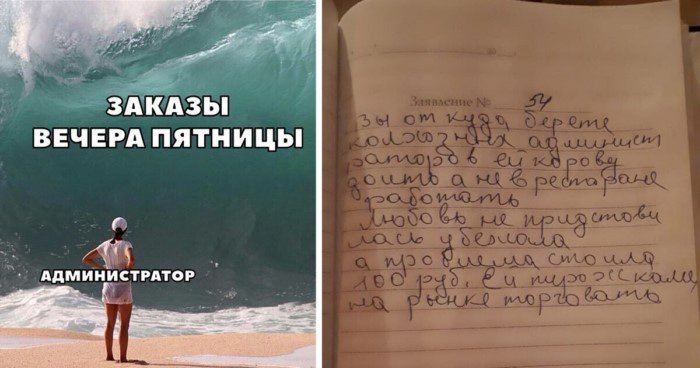 ЗАКАЗЫ
ВЕЧЕРА ПЯТНИЦЫ
АДМИНИСТРАТОР
Заявление № 54
вы от куда берете
колхозных админист
раторов ей корову
доить а не в рестаране
работать
Любовь не придстови
лась убежала
а проблема стоила
100 руб. Ей пирожками
на рынке торговать